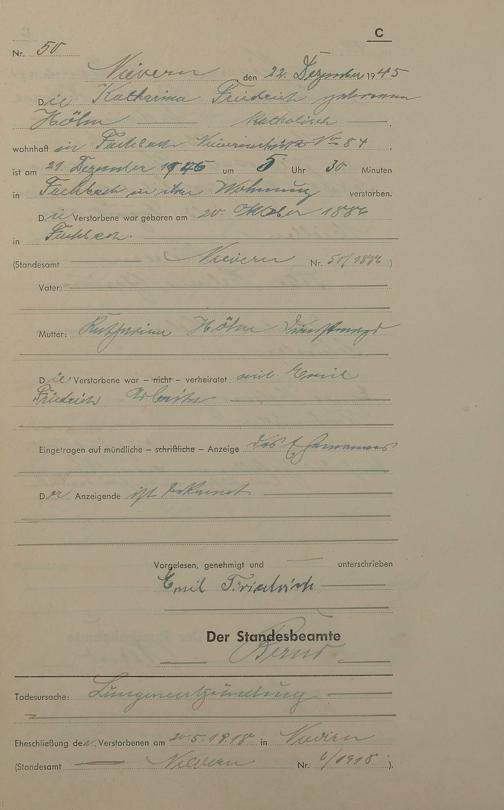 C
Nr. 50
Nievern, den 22. Dezember 1945
Die Katharina Friedrich geborene
Höhn katholisch
wohnhaft in Fachbach Nr 84
ist am 21. Dezember 1945 um 5 Uhr 30 Minuten
in Fachbach in ihrer Wohnung verstorben.
Die Verstorbene war geboren am 20. Oktober 1886
in Fachbach.
(Standesamt Nievern Nr. 50/1886)
Vater:
Mutter: Katharina Höhn Dienstmagd
Die Verstorbene war – nicht – verheiratet mit Emil
Friedrich
Eingetragen auf mündliche – schriftliche – Anzeige des Ehemannes
Der Anzeigende ist bekannt
Vorgelesen, genehmigt und unterschrieben
Emil Friedrich
Der Standesbeamte
Todesursache: Lungenentzündung
Eheschließung der Verstorbenen am 20.5.1918 in Nievern
(Standesamt Nievern Nr. 6/1918).